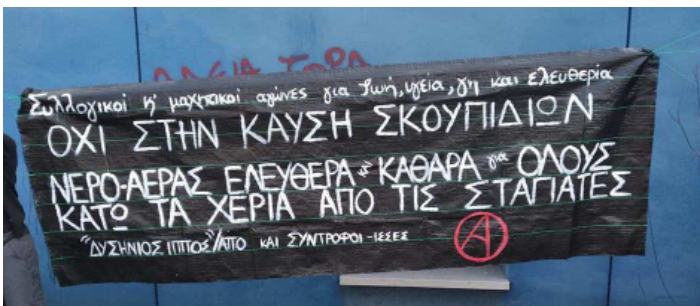 ΑΔΕΙΑ ΤΩΡΑ
Συλλογικοί κ' μαχητικοί αγώνες για ζωή, υγεία, γη και ελευθερία
ΟΧΙ ΣΤΗΝ ΚΑΥΣΗ ΣΚΟΥΠΙΔΙΩΝ
ΝΕΡΟ-ΑΕΡΑΣ ΕΛΕΥΘΕΡΑ κ' ΚΑΘΑΡΑ για ΟΛΟΥΣ
ΚΑΤΩ ΤΑ ΧΕΡΙΑ ΑΠΟ ΤΙΣ ΣΤΑΓΙΑΤΕΣ
"ΔΥΣΗΝΙΟΣ ΙΠΠΟΣ"/ΑΠΟ ΚΑΙ ΣΥΝΤΡΟΦΟΙ-ΙΣΣΕΣ